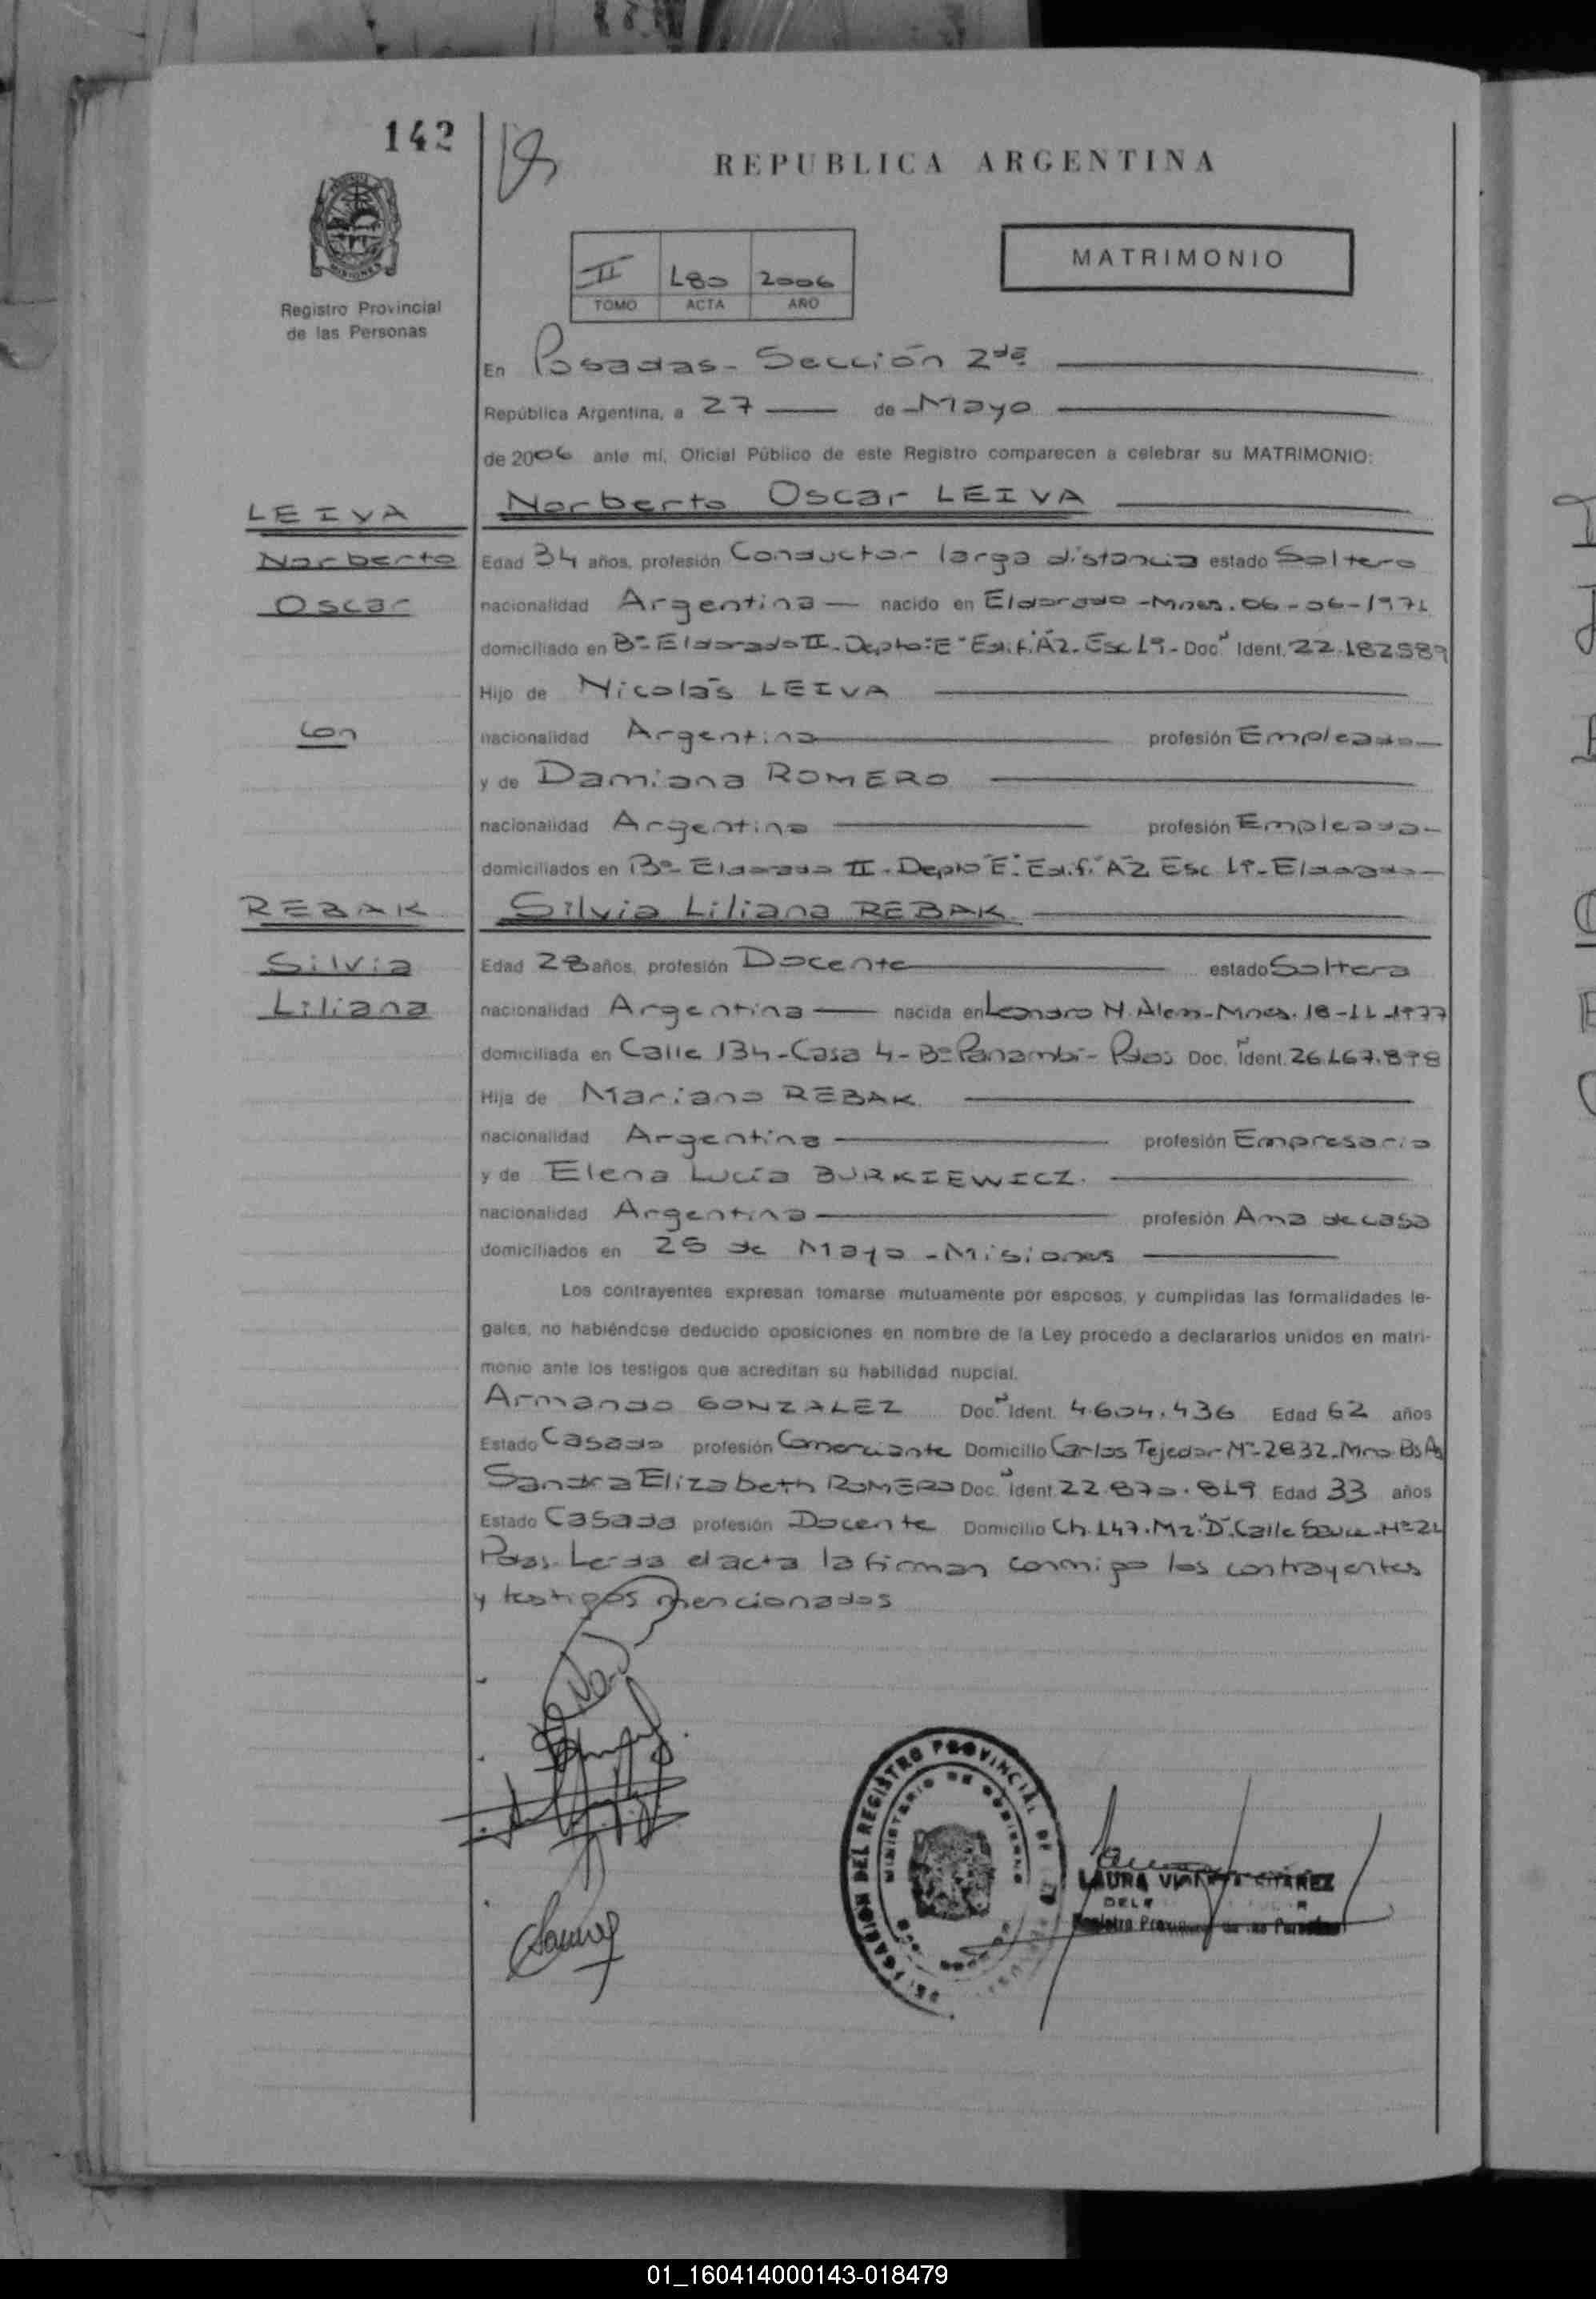 142
REPUBLICA ARGENTINA
MATRIMONIO
II 180 2006
TOMO ACTA AÑO
Registro Provincial
de las Personas
En Posadas - Sección 2da
República Argentina, a 27 de Mayo
de 2006 ante mí, Oficial Público de este Registro comparecen a celebrar su MATRIMONIO:
LEIVA
Norberto
Oscar
Norberto Oscar LEIVA
Edad 34 años, profesión Conductor larga distancia estado Soltero
nacionalidad Argentina nacido en Eldorado - Mnes. 06-06-1971
domiciliado en Bº Eldorado II - Depto: "E" Edif. "A2" Esc 1º - Doc Ident. 22.182.589
Hijo de Nicolás LEIVA
con
nacionalidad Argentina profesión Empleado
y de Damiana ROMERO
nacionalidad Argentina profesión Empleada
domiciliados en Bº Eldorado II - Depto "E" Edif. "A2" Esc 1º - Eldorado
REBAK
Silvia
Liliana
Silvia Liliana REBAK
Edad 28 años, profesión Docente estado Soltera
nacionalidad Argentina nacida en Leandro N. Alem - Mnes. 18-11-1977
domiciliada en Calle 134 - Casa 4 - Bº Panambí - Pdas Doc. Ident. 26.167.898
Hija de Mariano REBAK
nacionalidad Argentina profesión Empresario
y de Elena Lucía BURKIEWICZ.
nacionalidad Argentina profesión Ama de casa
domiciliados en 25 de Mayo - Misiones
Los contrayentes expresan tomarse mutuamente por esposos, y cumplidas las formalidades le-
gales, no habiéndose deducido oposiciones en nombre de la Ley procedo a declararlos unidos en matri-
monio ante los testigos que acreditan su habilidad nupcial.
Armando GONZALEZ Doc. Ident. 4.604.436 Edad 62 años
Estado Casado profesión Comerciante Domicilio Carlos Tejedor Nº 2832 - Mno Bs As
Sandra Elizabeth ROMERO Doc. Ident. 22.870.819 Edad 33 años
Estado Casada profesión Docente Domicilio Ch. 147. Mz. "D". Calle Nº 21
Pdas. Leída el acta la firman conmigo los contrayentes
y testigos mencionados
DELEGACION DEL REGISTRO PROVINCIAL DE
MINISTERIO DE GOBIERNO
LAURA
Registro Provincial de las Personas
01_160414000143-018479